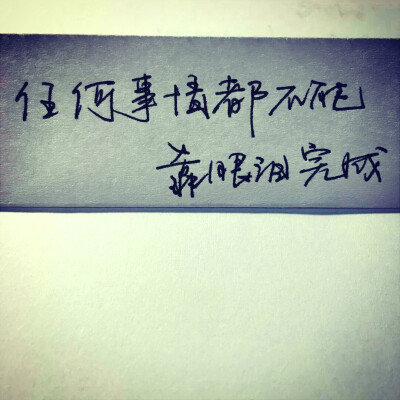 任何事情都不能
靠眼泪完成